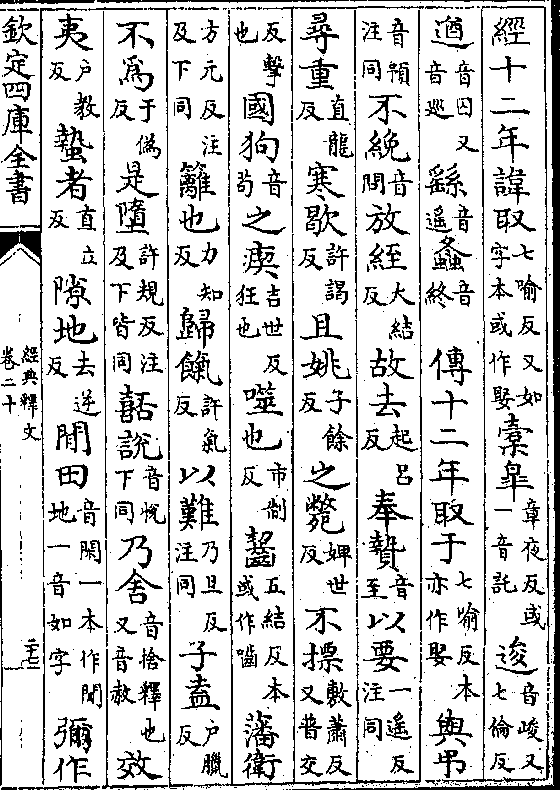 經十二年諱取七喻反又如字本或作娶橐臯章夜反或一音託逡音峻又七倫反
遒音囚又音巡繇音遙螽音終　傳十二年取于七喻反本亦作娶與弔
音預注同不絻音問放絰大結反故去起呂反奉贄音至以要一遥反注同
尋重直龍反寒歇許謁反且姚子餘反之斃婢世反不摽敷蕭反又普交
反擊也國狗音苟之瘈吉世反狂也噬也市制反齧五結反本或作噛藩衛
方元反注及下同籬也力知反歸餼許氣反以難乃旦反注同子盍户臘反
不爲于僞反是墮許規反注及下皆同嚭說音恱下同乃舍音捨釋也又音赦效
夷户教反蟄者直立反隙地去逆反閒田音閑一本作閒地一音如字彌作
欽定四庫全書
經典釋文
卷二十
二十七